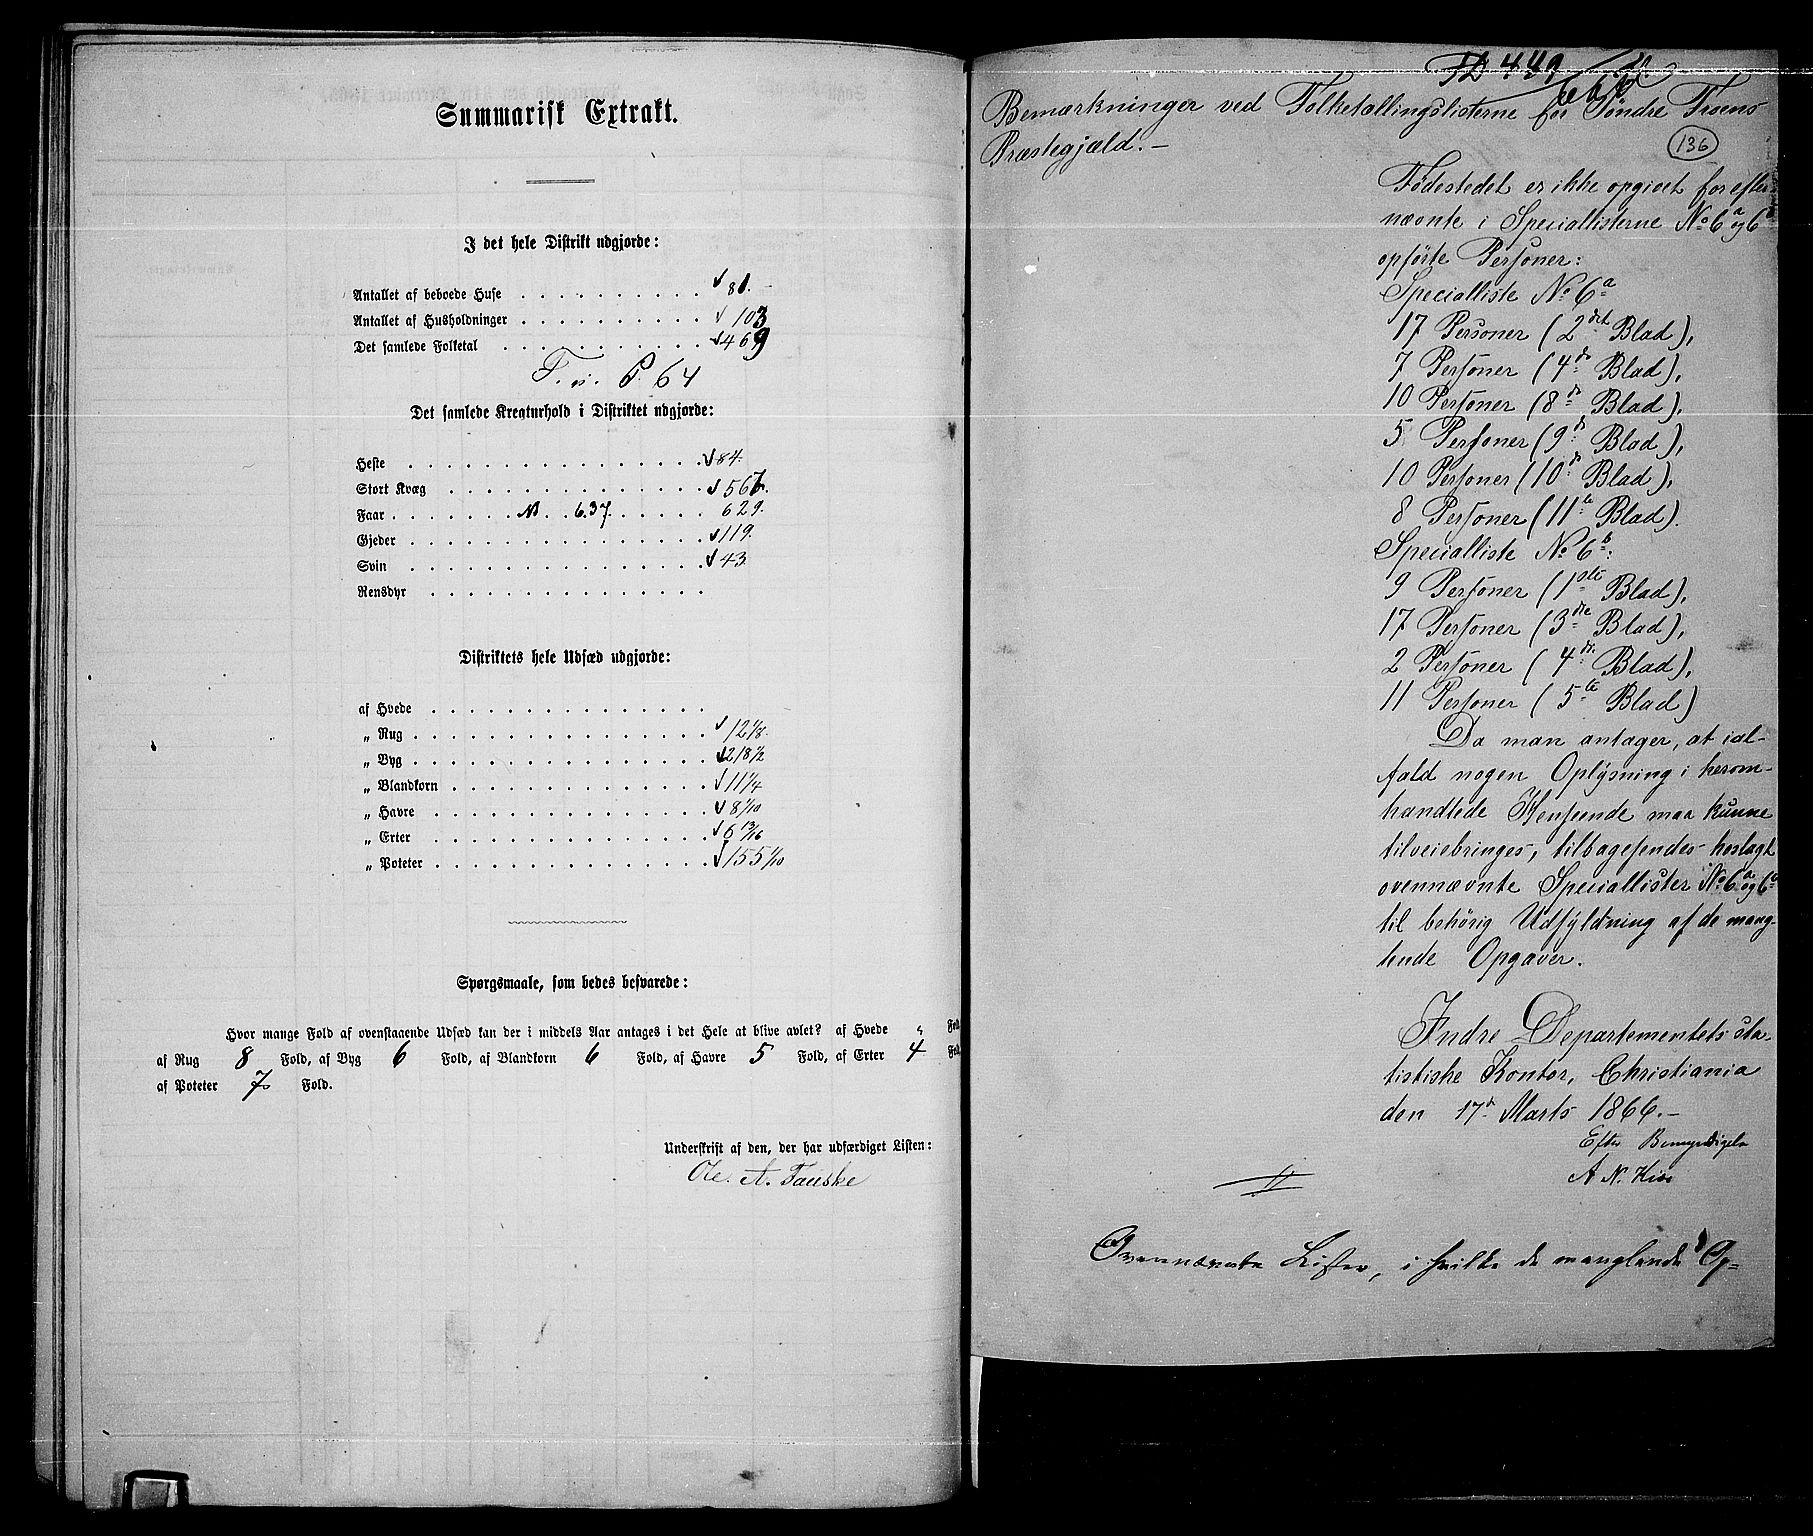 Summarisk Extrakt.
I det hele Distrikt udgjorde:
Antallet af beboede Huse . . . . . . . . . . 81.
Antallet af Husholdninger . . . . . . . . . . 103
Det samlede Folketal . . . . . . . . . . . 469
64
Det samlede Kreaturhold i Distriktet udgjorde:
Heste . . . . . . . . . . . . . . . . 84.
Stort Kvæg . . . . . . . . . . . . . . 567.
Faar . . . . . . . NB 637. . . . . . 629.
Gjeder . . . . . . . . . . . . . . . . 119.
Svin . . . . . . . . . . . . . . . . 43.
Rensdyr . . . . . . . . . . . . . . .
Distriktets hele Udsæd udgjorde:
af Hvede . . . . . . . . . . . . . . .
„ Rug . . . . . . . . . . . . . . . . 12 1/8.
„ Byg . . . . . . . . . . . . . . . . 218 1/2
„ Blandkorn . . . . . . . . . . . . . . 11 1/4
„ Havre . . . . . . . . . . . . . . . 8 1/10
„ Erter . . . . . . . . . . . . . . . 6 13/16
„ Poteter . . . . . . . . . . . . . . 155 1/10
Spørgsmaale, som bedes besvarede:
Hvor mange Fold af ovenstaaende Udsæd kan der i middels Aar antages i det Hele at blive avlet? af Hvede „ Fold
af Rug 8 Fold, af Byg 6 Fold, af Blandkorn 6 Fold, af Havre 5 Fold, af Erter 4 Fold,
af Poteter 7 Fold.
Underskrift af den, der har udfærdiget Listen:
Ole. A. Fauske
449
Bemærkninger ved Folketællingslisterne for Søndre Froens
Præstegjæld. –
136
Fødestedet er ikke opgivet for efter-
nævnte i Speciallisterne No 6a og 6b
opførte Personer:
Specialliste No 6a
17 Personer (2det Blad),
7 Personer (4de Blad),
10 Personer (8de Blad),
5 Personer (9de Blad),
10 Personer (10de Blad),
8 Personer (11te Blad).
Specialliste No 6b:
9 Personer (1ste Blad),
17 Personer (3die Blad),
2 Personer (4de Blad),
11 Personer (5te Blad)
Da man antager, at ial-
fald nogen Oplysning i herom-
handlede Henseende maa kunne
tilveiebringes, tilbagesendes hoslagt
ovennævnte Speciallister No 6a og 6b
til behørig Udfyldning af de mang-
lende Opgaver.
Indre Departementets sta-
tistiske Kontor, Christiania
den 17de Marts 1866. –
Efter Bemyndigelse
A. N. Kiær
Ovennævnte Lister, i hvilke de manglende Op-